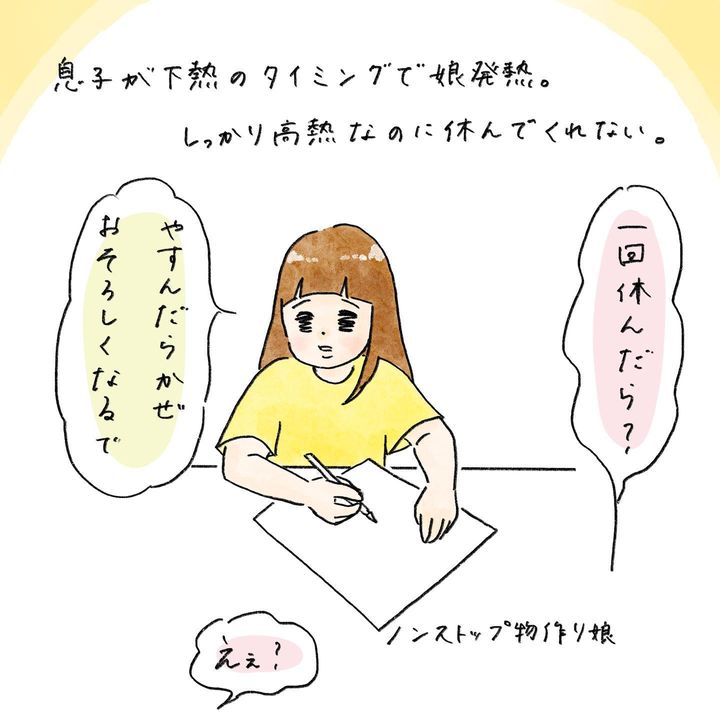 息子が下熱のタイミングで娘発熱。
しっかり高熱なのに休んでくれない。
一回休んだら?
やすんだらかぜ
おそろしくなるで
ノンストップ物作り娘
えぇ?